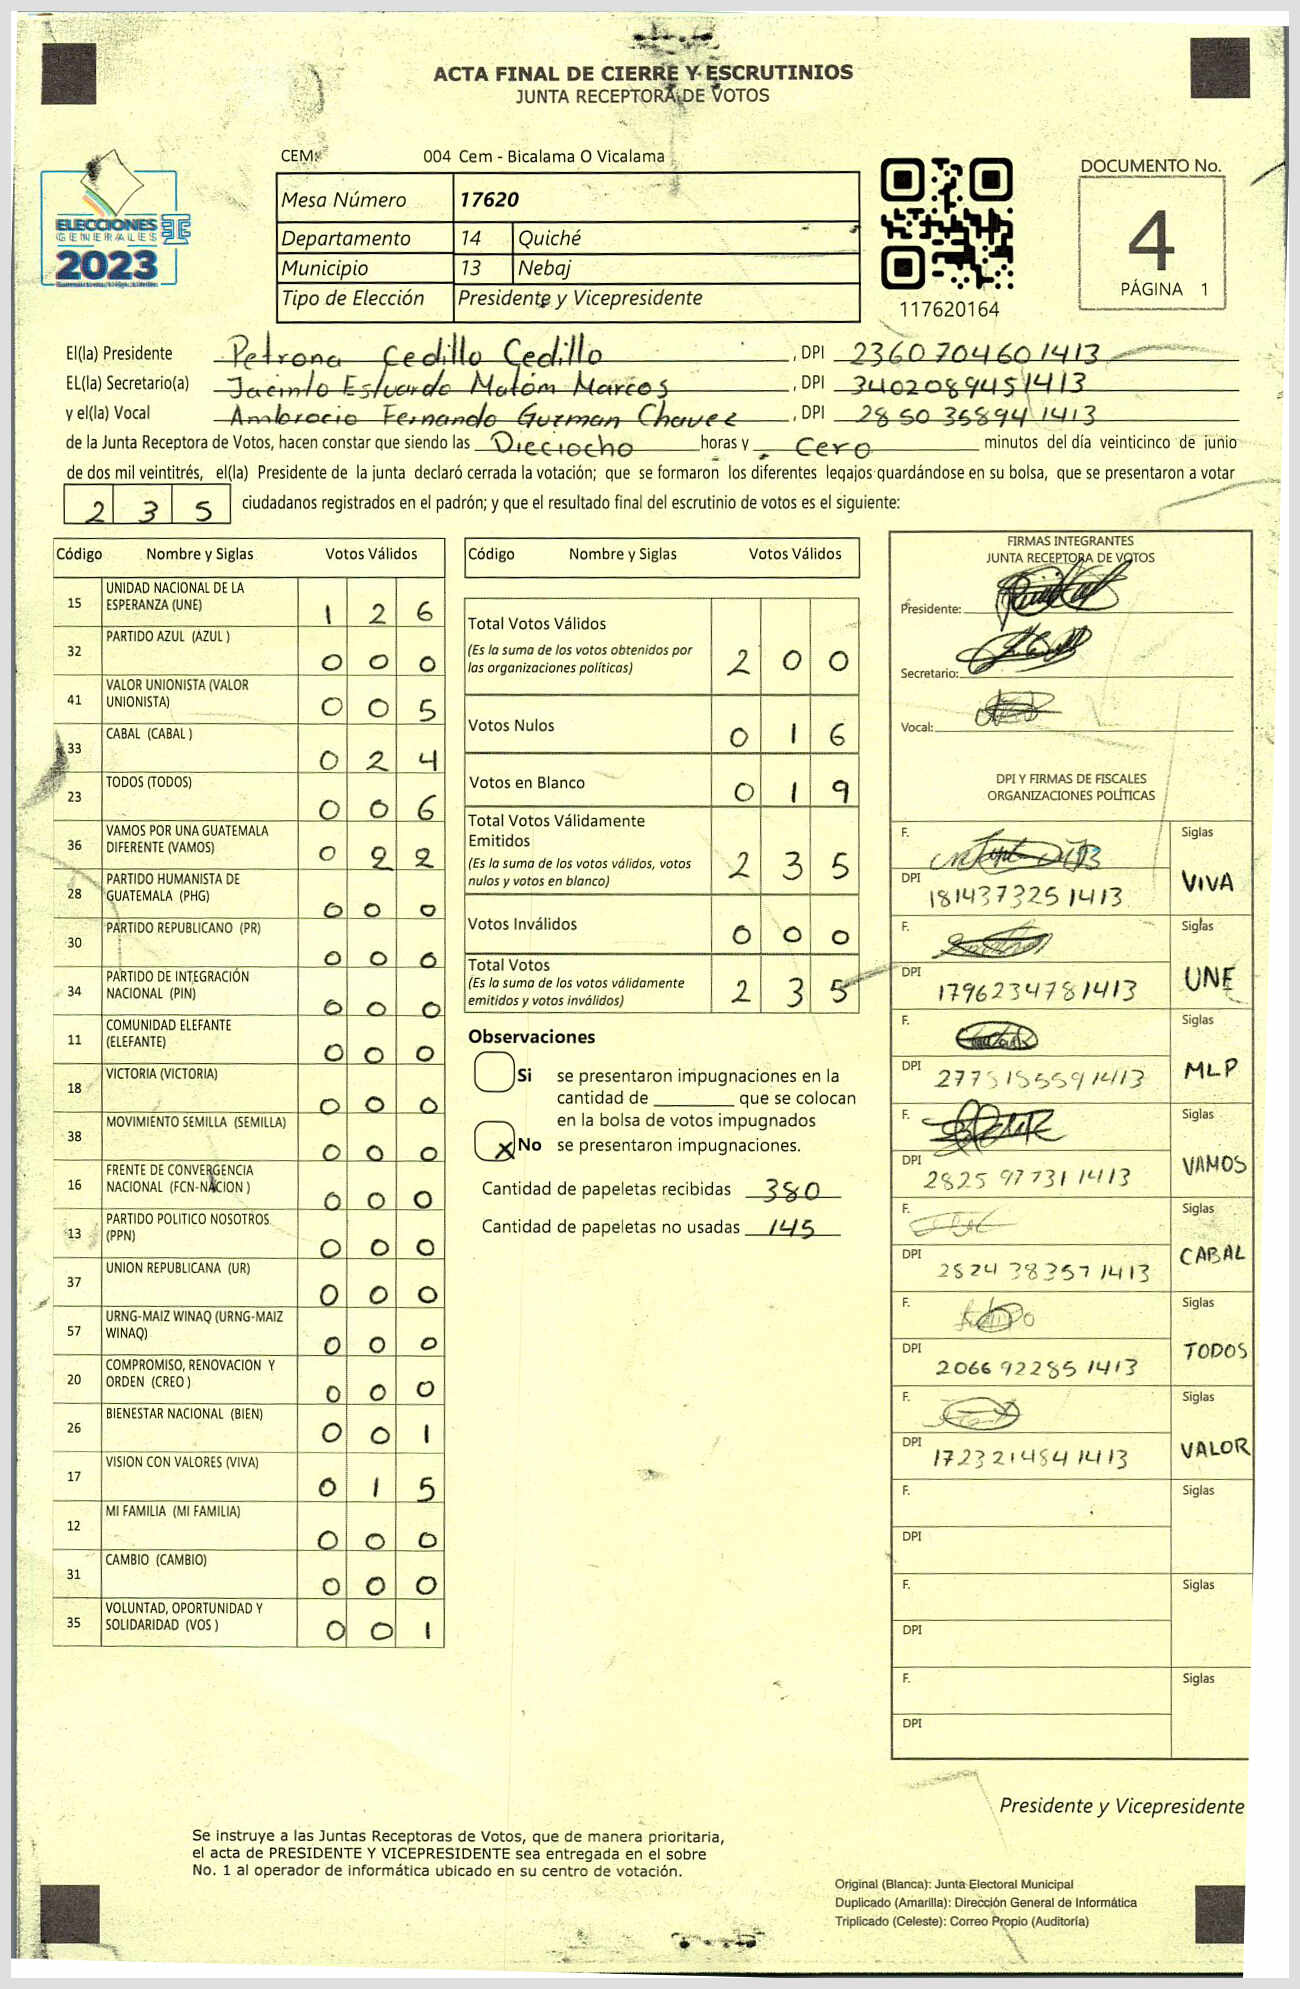 ACTA FINAL DE CIERRE Y ESCRUTINIOS
JUNTA RECEPTORA DE VOTOS
CEM: 004 Cem - Bicalama O Vicalama
ELECCIONES
GENERALES
2023
Mesa Número 17620
Departamento 14 Quiché
Municipio 13 Nebaj
Tipo de Elección Presidente y Vicepresidente
117620164
DOCUMENTO No.
4
PÁGINA 1
El(la) Presidente Petrona Cedillo Cedillo, DPI 2360 70460 1413
EL(la) Secretario(a) Jacinto Estuardo Matóm Marcos, DPI 340208945 1413
y el(la) Vocal Ambrocio Fernando Guzman Chavez, DPI 2850 35894 1413
de la Junta Receptora de Votos, hacen constar que siendo las Dieciocho horas y Cero minutos del día veinticinco de junio
de dos mil veintitrés, el(la) Presidente de la junta declaró cerrada la votación; que se formaron los diferentes legajos guardándose en su bolsa, que se presentaron a votar
2 3 5 ciudadanos registrados en el padrón; y que el resultado final del escrutinio de votos es el siguiente:
Código Nombre y Siglas Votos Válidos
15 UNIDAD NACIONAL DE LA ESPERANZA (UNE) 1 2 6
32 PARTIDO AZUL (AZUL ) 0 0 0
41 VALOR UNIONISTA (VALOR UNIONISTA) 0 0 5
33 CABAL (CABAL ) 0 2 4
23 TODOS (TODOS) 0 0 6
36 VAMOS POR UNA GUATEMALA DIFERENTE (VAMOS) 0 2 2
28 PARTIDO HUMANISTA DE GUATEMALA (PHG) 0 0 0
30 PARTIDO REPUBLICANO (PR) 0 0 0
34 PARTIDO DE INTEGRACIÓN NACIONAL (PIN) 0 0 0
11 COMUNIDAD ELEFANTE (ELEFANTE) 0 0 0
18 VICTORIA (VICTORIA) 0 0 0
38 MOVIMIENTO SEMILLA (SEMILLA) 0 0 0
16 FRENTE DE CONVERGENCIA NACIONAL (FCN-NACION ) 0 0 0
13 PARTIDO POLITICO NOSOTROS (PPN) 0 0 0
37 UNION REPUBLICANA (UR) 0 0 0
57 URNG-MAIZ WINAQ (URNG-MAIZ WINAQ) 0 0 0
20 COMPROMISO, RENOVACION Y ORDEN (CREO ) 0 0 0
26 BIENESTAR NACIONAL (BIEN) 0 0 1
17 VISION CON VALORES (VIVA) 0 1 5
12 MI FAMILIA (MI FAMILIA) 0 0 0
31 CAMBIO (CAMBIO) 0 0 0
35 VOLUNTAD, OPORTUNIDAD Y SOLIDARIDAD (VOS ) 0 0 1
Código Nombre y Siglas Votos Válidos
Total Votos Válidos
(Es la suma de los votos obtenidos por
las organizaciones políticas) 2 0 0
Votos Nulos 0 1 6
Votos en Blanco 0 1 9
Total Votos Válidamente
Emitidos
(Es la suma de los votos válidos, votos
nulos y votos en blanco) 2 3 5
Votos Inválidos 0 0 0
Total Votos
(Es la suma de los votos válidamente
emitidos y votos inválidos) 2 3 5
Observaciones
Si se presentaron impugnaciones en la
cantidad de ________ que se colocan
en la bolsa de votos impugnados
X No se presentaron impugnaciones.
Cantidad de papeletas recibidas 380
Cantidad de papeletas no usadas 145
FIRMAS INTEGRANTES
JUNTA RECEPTORA DE VOTOS
Presidente:
Secretario:
Vocal:
DPI Y FIRMAS DE FISCALES
ORGANIZACIONES POLÍTICAS
F. Siglas
DPI 181437325 1413 VIVA
F. Siglas
DPI 1796234781413 UNE
F. Siglas
DPI 1413 MLP
F. Siglas
DPI 2825 97731 1413 VAMOS
F. Siglas
DPI 2824 38357 1413 CABAL
F. Siglas
DPI 2066 92285 1413 TODOS
F. Siglas
DPI 172321484 1413 VALOR
F. Siglas
DPI
F. Siglas
DPI
F. Siglas
DPI
Presidente y Vicepresidente
Se instruye a las Juntas Receptoras de Votos, que de manera prioritaria,
el acta de PRESIDENTE Y VICEPRESIDENTE sea entregada en el sobre
No. 1 al operador de informática ubicado en su centro de votación.
Original (Blanca): Junta Electoral Municipal
Duplicado (Amarilla): Dirección General de Informática
Triplicado (Celeste): Correo Propio (Auditoría)